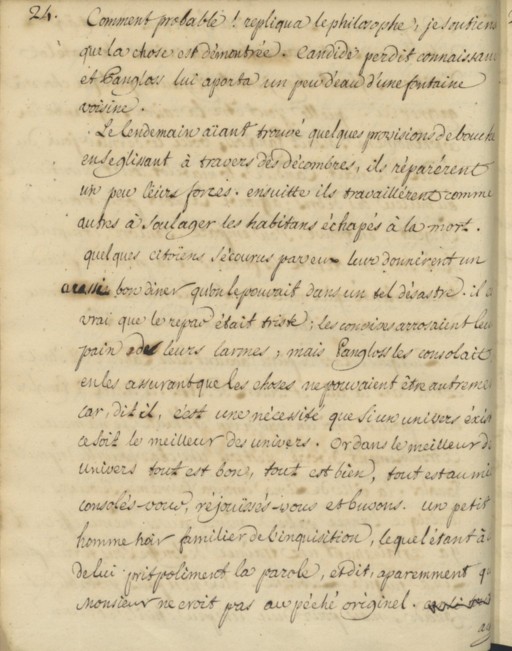 24.
Comment probable ! repliqua le philosophe, je soutiens
que la chose est démontrée. Candide perdit connaissan
et Pangloss lui aporta un peu d'eau d'une fontaine
voisine.
Le lendemain aïant trouvé quelques provisions de bouche
en se glissant à travers des décombres, ils réparérent
un peu leurs forces. ensuitte ils travaillérent comme
autres à soulager les habitans échapés à la mort.
quelques citoiens secourus par eux leur donnérent un
aussi bon diner qu'on le pouvait dans un tel désastre. il e
vrai que le repas était triste; les convives arrosaient leu
pain de leurs larmes; mais Pangloss les consolait
en les assurant que les choses ne pouvaient être autreme
car, dit il, c'est une nécessité que si un univers éxis
ce soit le meilleur des univers. Or dans le meilleur de
univers tout est bon, tout est bien, tout est au mi
consolés-vous, réjouissés-vous et buvons. un petit
homme noir familier de l'inquisition, lequel était à c
de lui prit poliment la parole, et dit, aparemment q
Monsieur ne croit pas au péché originel.